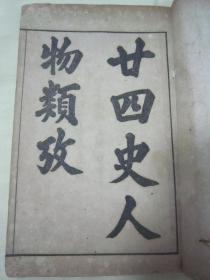 廿四史人
物類攷